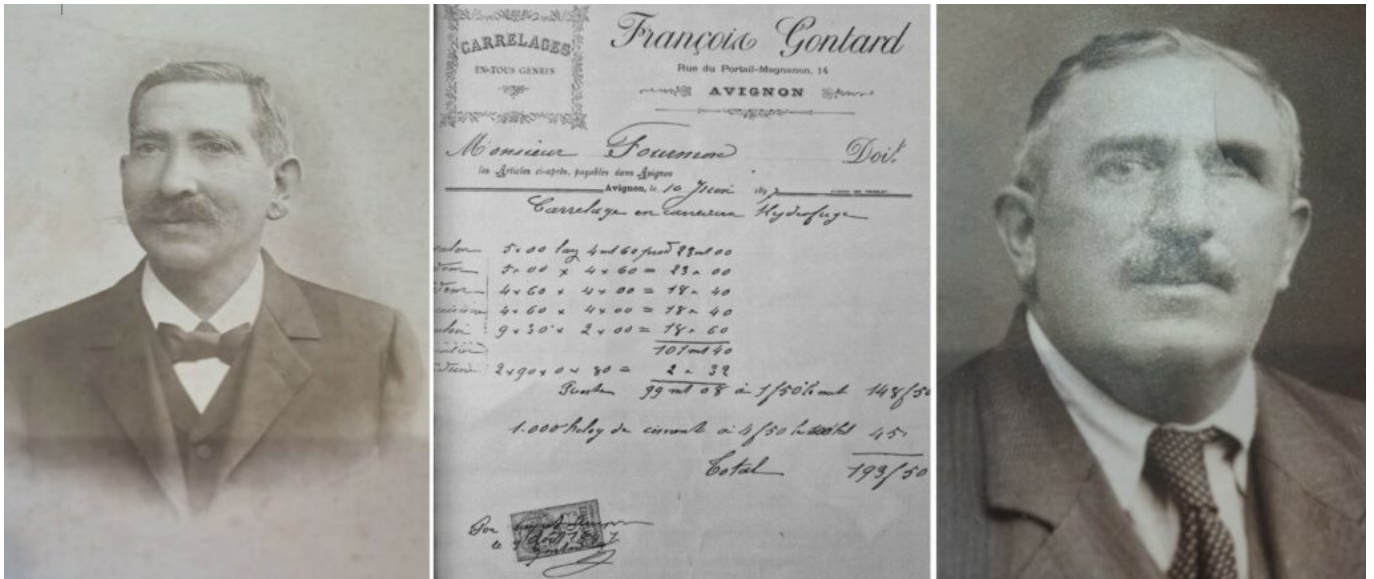 CARRELAGES
EN-TOUS GENRES
François Gontard
Rue du Portail-Magnanen, 14
AVIGNON
Monsieur Fournon Doit
les Articles ci-après, payables dans Avignon
Avignon, le 10 Juin 189
Carrelage en Hydrofuge
5.00 4 60 prod 23 00
5.00 x 4 x 60 = 23 00
4 x 60 x 4 x 00 = 18 40
4 x 60 x 4 x 00 = 18 40
9 x 30 x 2 x 00 = 18 60
101 mt 40
2 x 90 x 0 x 80 = 2 32
99 mt 08 à 1f50 le mt 148f50
1.000 de à 4f50 45
Total 193f50